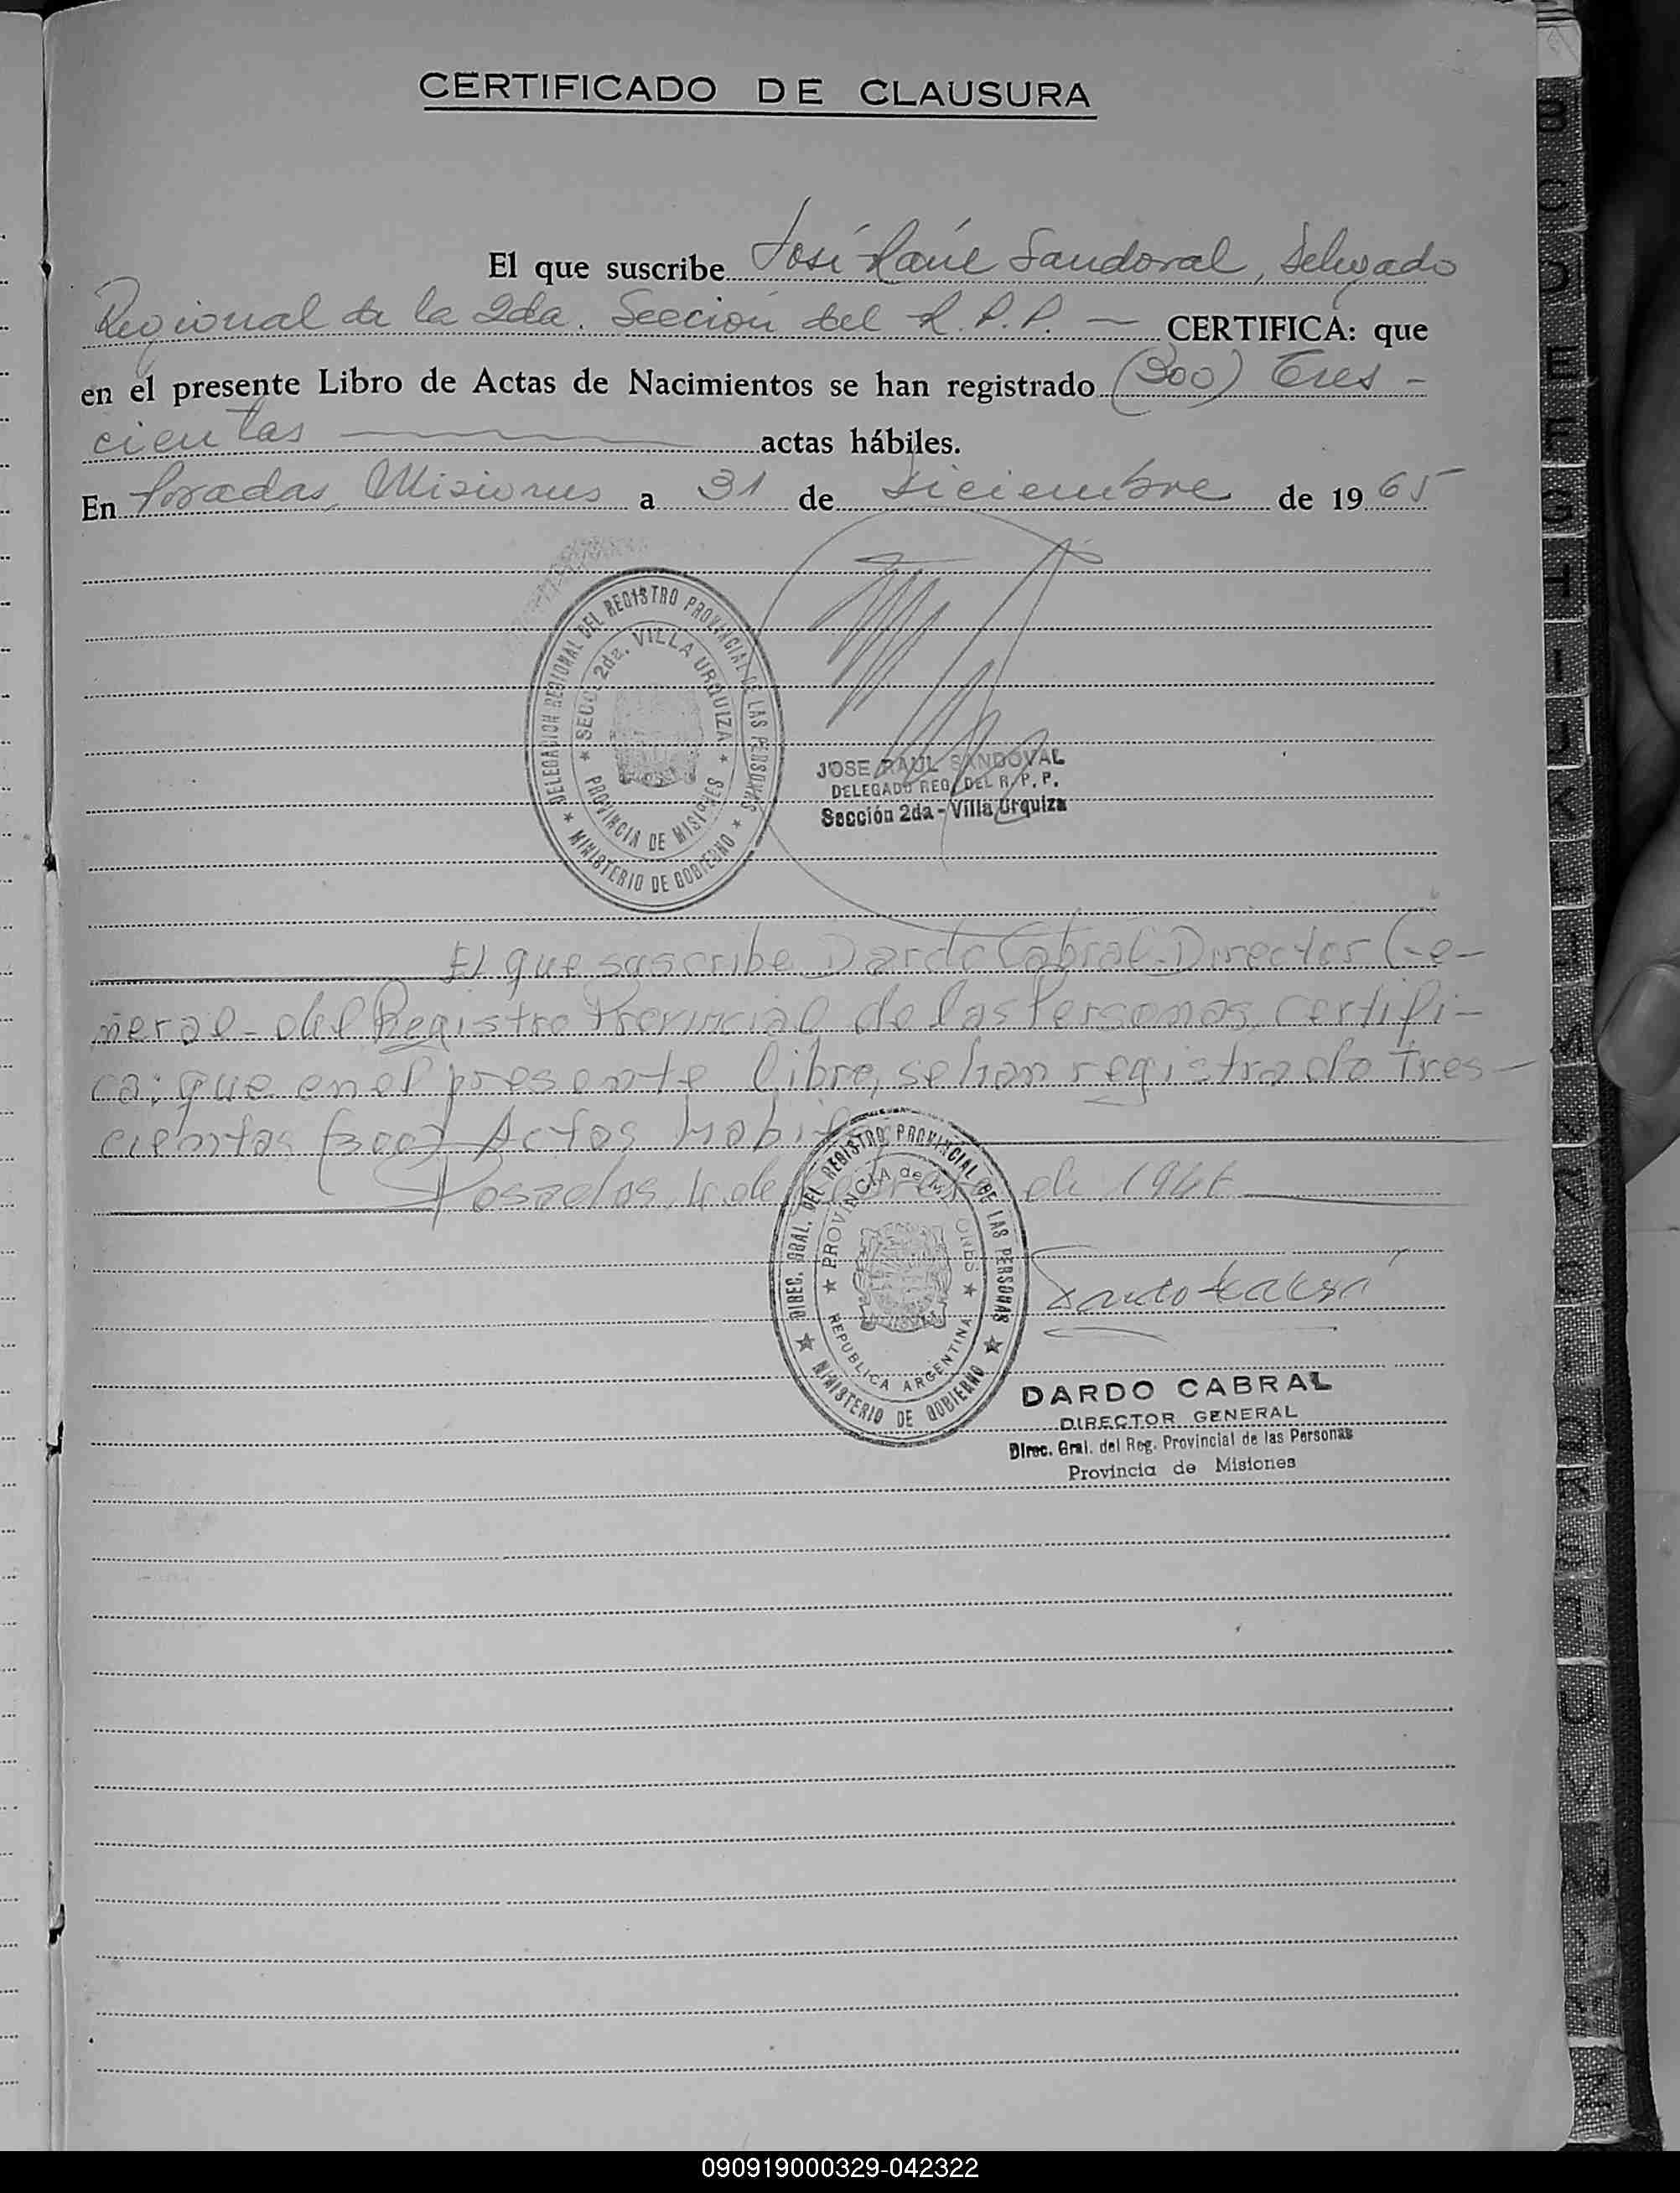 CERTIFICADO DE CLAUSURA
El que suscribe José Raúl Sandoval, Delegado
Regional de la 2da. Sección del R.P.P. — CERTIFICA: que
en el presente Libro de Actas de Nacimientos se han registrado (300) Tres-
cientas actas hábiles.
En Posadas, Misiones a 31 de diciembre de 1965
DELEGACION REGIONAL DEL REGISTRO PROVINCIAL DE LAS PERSONAS
SECC. 2da. VILLA URQUIZA
PROVINCIA DE MISIONES
MINISTERIO DE GOBIERNO
JOSE RAUL SANDOVAL
DELEGADO REG. DEL R. P. P.
Sección 2da - Villa Urquiza
El que suscribe Dardo Cabral-Director Ge-
neral-del Registro Provincial de las Personas, certifi-
ca: que en el presente libro, se han registrado Tres-
cientas (300) Actas Habi
Posadas, de de
DIREC. GRAL. DEL REGISTRO PROVINCIAL DE LAS PERSONAS
PROVINCIA de MISIONES
REPUBLICA ARGENTINA
MINISTERIO DE GOBIERNO
Dardo Cabral
DARDO CABRAL
DIRECTOR GENERAL
Direc. Gral. del Reg. Provincial de las Personas
Provincia de Misiones
B
C
D
E
F
G
H
I
J
K
090919000329-042322